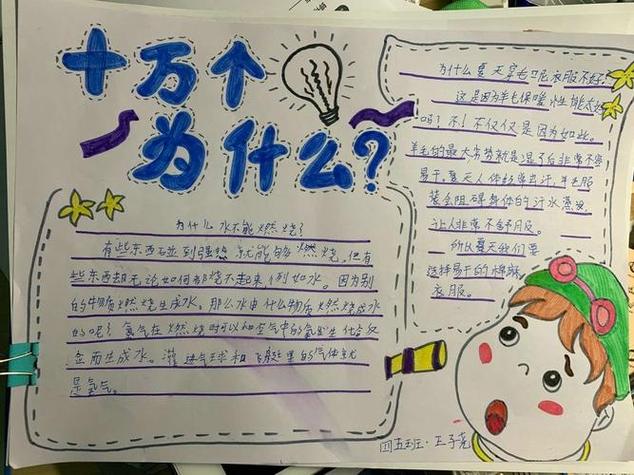 十万个
为什么?
为什么水不能燃烧?
有些东西碰到强热就能够燃烧。但有
些东西却无论如何都烧不起来,例如水。因为别
的物质燃烧生成水。那么水由什么物质燃烧成水
的呢?氢气在燃烧时可以和空气中的氧发生化合反
应而生成水。灌进气球和飞艇里的气体就
是氢气。
为什么夏天穿毛呢衣服不好?
这是因为羊毛保暖性能太好
吗?不!不仅仅是因为如此。
羊毛的最大劣势就是湿了后非常不容
易干,夏天人体容易出汗,毛呢服
装会阻碍身体的汗水蒸发,
让人非常不舒服。
所以夏天我们要
选择易干的棉麻
衣服。
四五班·王子尧